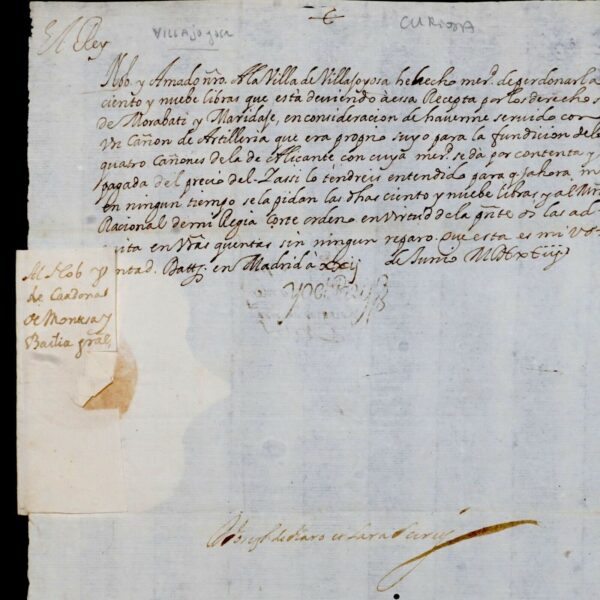 El Rey
VILLAJOYOSA
CURIOSA
Nob. y Amado nro. A la Villa de Villajoyosa he hecho mer.d de perdonarla
ciento y nuebe libras que está deviendo a essa Recepta por los derechos
de Morabati y Maridaje, en consideracion de haverme servido con
un Cañon de Artilleria que era proprio suyo para la fundicion de los
quatro Cañones de la de Alicante con cuya mer.d se da por contenta y
pagada del precio del. Assi lo tendreis entendido para q ahora, ni
en ningun tiempo se la pidan las dhas ciento y nuebe libras y al Mre
Racional de mi Regia Corte ordeno en virtud de la pnte os las ad
mita en vras quentas sin ningun reparo. Que esta es mi vo
luntad. Datt. en Madrid á xxij de Junio MDCxCiij
Yo el Rey
Al Nob y
de Cardona
de Montesa y
Bailia gral